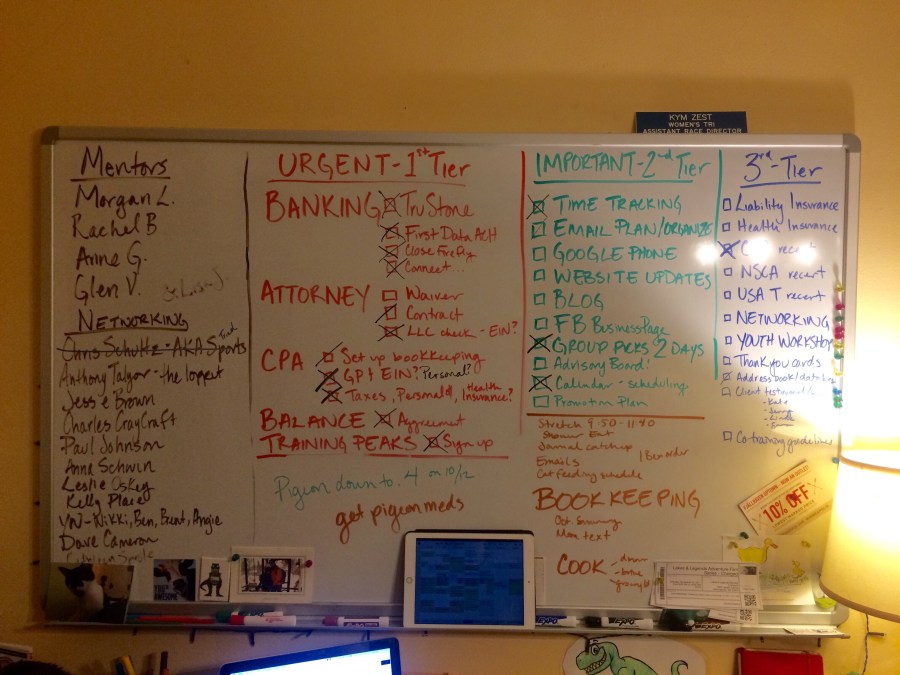 KYM ZEST
WOMEN'S TRI
ASSISTANT RACE DIRECTOR
Mentors
Morgan L.
Rachel B
Anne G.
Glen V.
NETWORKING
Chris Schultz - AKA Sports
Anthony Taylor - the loppet
Jesse Brown
Charles CrayCraft
Paul Johnson
Anna Schwin
Leslie Oskey
Kelly Place
YN - Nikki, Ben, Brent, Angie
Dave Cameron
URGENT - 1st Tier
BANKING TruStone
First Data ACH
Close Firefly
Connect...
ATTORNEY Waiver
Contract
LLC check - EIN?
CPA Set up bookkeeping
GP + EIN? Personal?
Taxes, Personal, Health Insurance?
BALANCE Aggreement
TRAINING PEAKS Sign up
Pigeon down to .4 on 10/12
get pigeon meds
IMPORTANT - 2nd Tier
TIME TRACKING
EMAIL PLAN/ORGANIZE
GOOGLE PHONE
WEBSITE UPDATES
BLOG
FB Business Page
GROUP PICKS 2 DAYS
Advisory Board!
Calendar - scheduling
Promotion Plan
Stretch 9:50 - 11:40
Shower Eat
Journal catch up
Emails
Cat feeding schedule
BOOKKEEPING
Oct Summary
Mon text
COOK
3rd - Tier
Liability Insurance
Health Insurance
recert
NSCA recert
USAT recert
NETWORKING
YOUTH WORKSHOP
Thank you cards
Address book/data
Client testimonials
Co training guidelines
10% OFF
EXPO